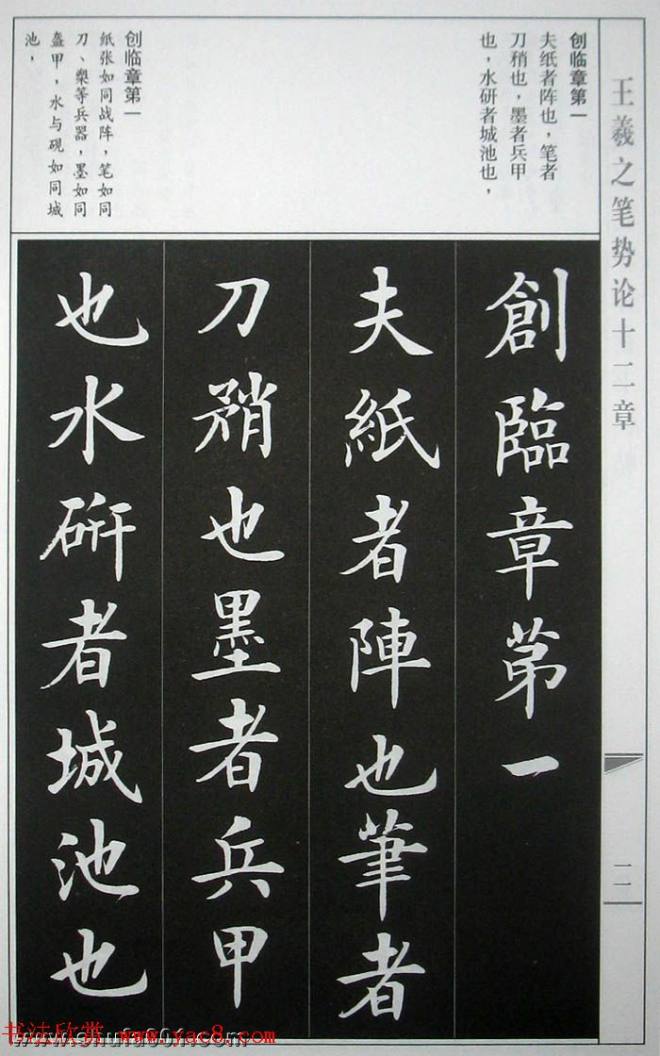 王羲之笔势论十二章
创临章第一
夫纸者阵也，笔者
刀矟也，墨者兵甲
也，水研者城池也，
创临章第一
纸张如同战阵，笔如同
刀、槊等兵器，墨如同
盔甲，水与砚如同城
池，
創臨章第一
夫紙者陣也筆者
刀矟也墨者兵甲
也水研者城池也
二
书法欣赏 www.yac8.com